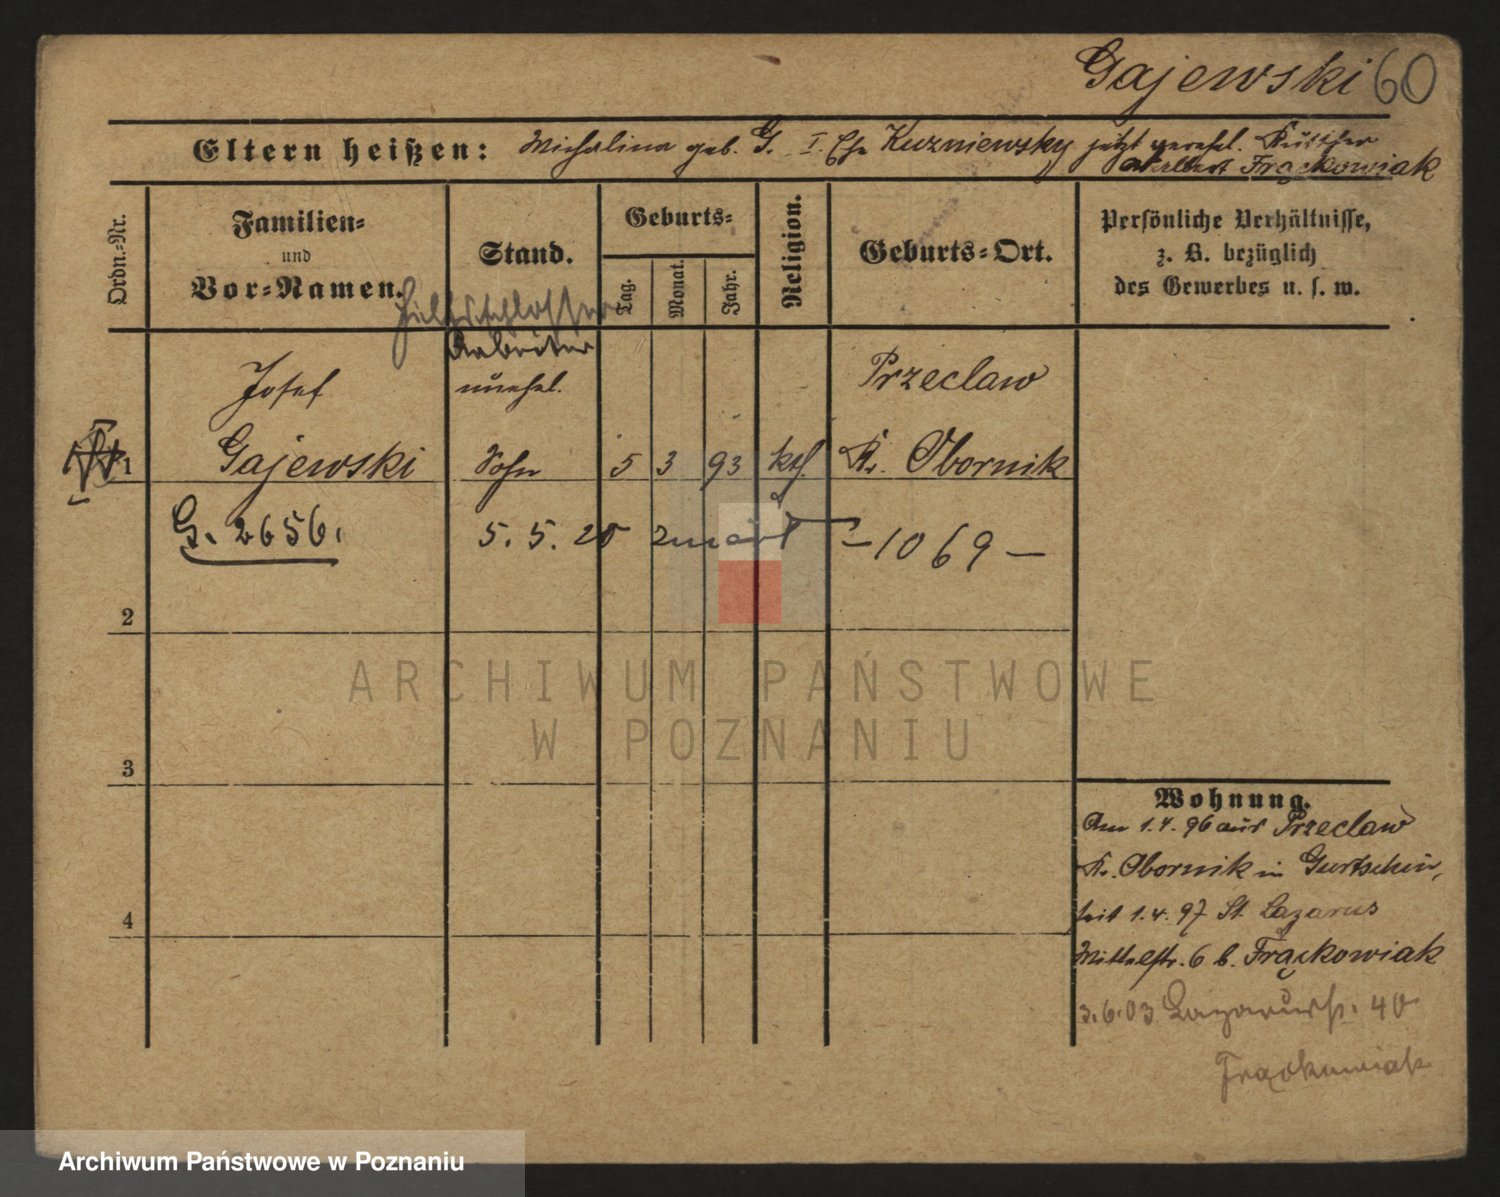 Gajewski 60
Eltern heißen: Michalina geb. G. I. Ehe Kuzniewsky jetzt verehel. Kutscher
Adalbert Frąckowiak
Ordn.-Nr.
Familien-
und
Vor-Namen.
Stand.
Geburts-
Tag.
Monat.
Jahr.
Religion.
Geburts-Ort.
Persönliche Verhältnisse,
z. B. bezüglich
des Gewerbes u. s. w.
Hilfsschlosser
Arbeiter
Josef unehel. Przeclaw
1 Gajewski Sohn 5 3 93 kth. Kr. Obornik
G. 2656. 5. 5. 20 - 1069 -
2
3
4
ARCHIWUM PAŃSTWOWE
W POZNANIU
Wohnung.
Am 1.4.96 aus Przeclaw
Kr. Obornik in Gurtschin,
seit 1.4.97 St. Lazarus
Mittelstr. 6 b. Frąckowiak
3.6.03 Lazarusstr. 40
Frąckowiak
Archiwum Państwowe w Poznaniu